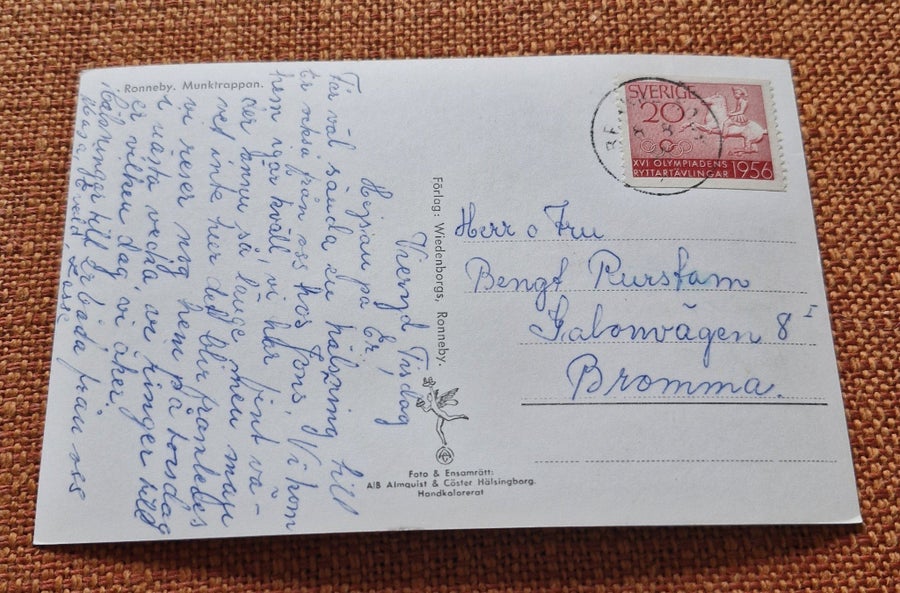 Ronneby. Munktrappan.
Vieryd Tisdag
Hejsan på Er,
Tar väl sända en hälsning till
Er också från oss hos Tons, Vi kom
hem igår kväll, vi har fint vä-
der ännu så länge, men man
vet inte hur det blir framledes
vi reser nog hem på torsdag
i nästa vecka, vi ringer väd
er vilken dag vi åker.
Hälsningar till Er båda från oss
Lasse
Förlag: Wiedenborgs, Ronneby.
Foto & Ensamrätt:
A/B Almquist & Cöster Hälsingborg.
Handkolorerat
SVERIGE
20
XVI OLYMPIADENS
RYTTARTÄVLINGAR 1956
Herr o Fru
Bengt Rurstam
Galonvägen 8 I
Bromma.